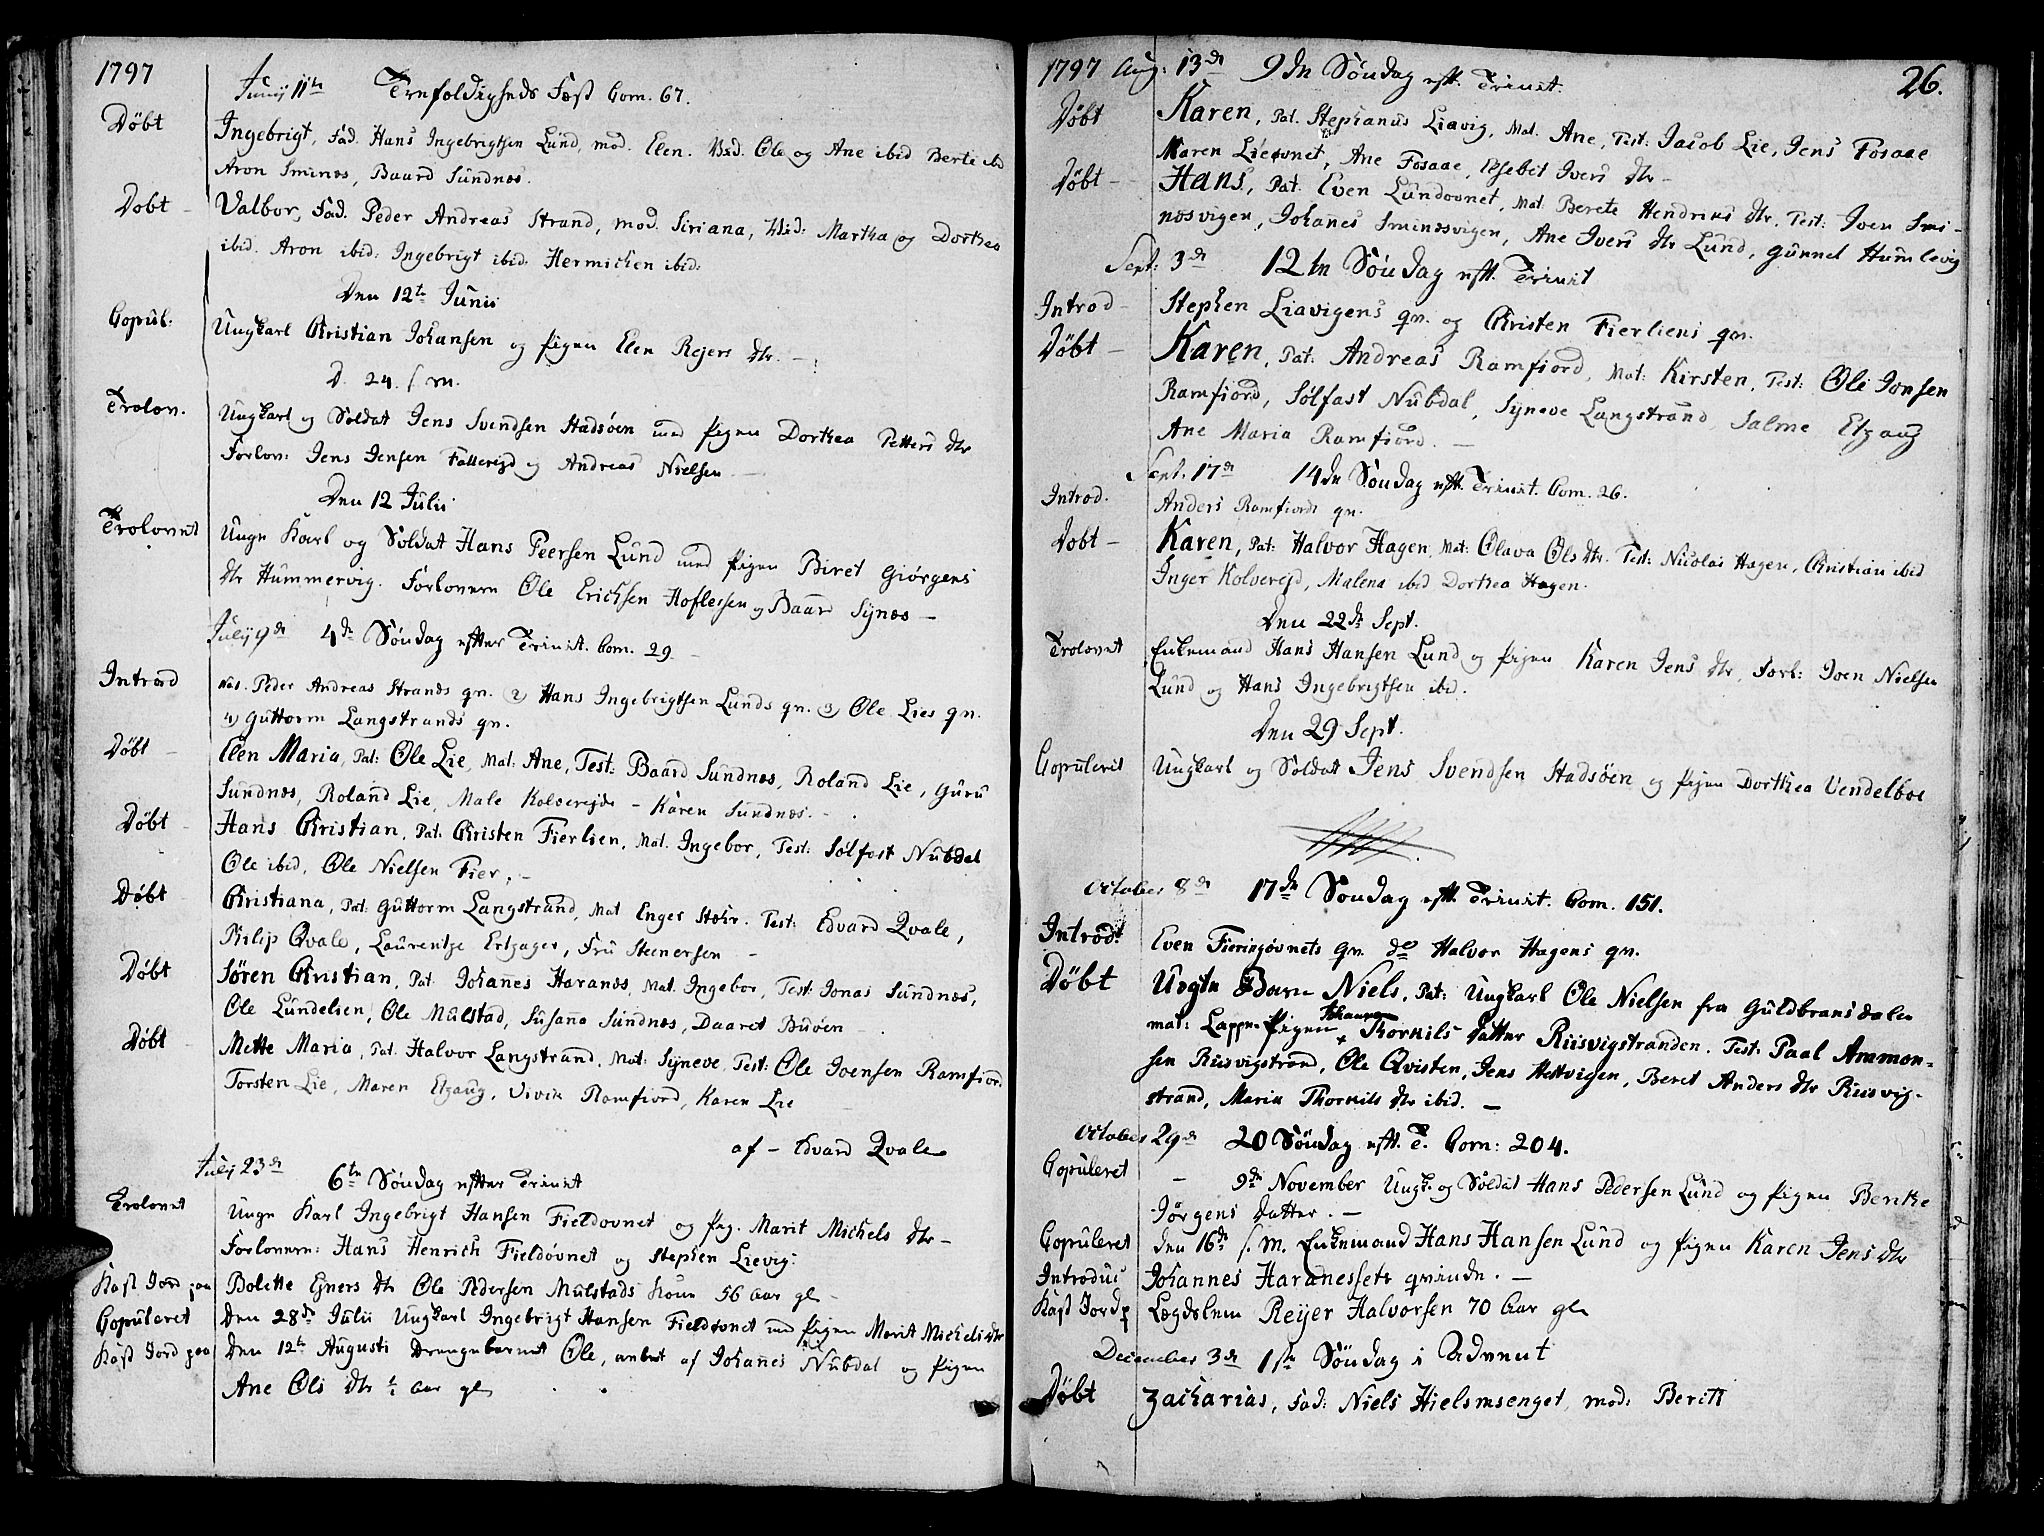 1797
Junij 11te Trefoldigheds Fæst Com. 67.
Döbt Ingebrigt, Fad. Hans Ingebrigtsen Lund, mod. Elen. Vid. Ole og Ane ibid Berte ibd
Aron Sminæs, Baard Sundnæs.
Dobt – Valbor, Fad. Peder Andreas Strand, mod. Siriana, Vid: Martha og Dorthea
ibid. Aron ibid: Ingebrigt ibid: Hermichen ibid:
Den 12te Junii
Copul: Ungkarl Christian Johansen og Pigen Elen Rejers dtr. –
D. 24. s. m.
Trolov. Ungkarl og Soldat Jens Svendsen Stadsöen med Pigen Dorthea Petters dtr
Forlov: Jens Jensen Fallerejd og Andreas Nielsen –
Den 12 Julii
Trolovet Unge Karl og Soldat Hans Peersen Lund med Pigen Biret Giörgens
dtr Hummervig. Forlovere Ole Erichsen Hoflessen og Baard Synæs –
Julij 9de 4de Söndag efter Trinit. Com. 29 –
Introd No1. Peder Andreas Strands qv. 2) Hans Ingebrigtsen Lunds qv. 3) Ole Lies qv.
4) Guttorm Langstrands qv.
Döbt – Elen Maria, Pat: Ole Lie, Mat: Ane, Test: Baard Sundnæs, Roland Lie, Guru
Sundnæs, Roland Lie, Male Kolverejde – Karen Sundnæs. –
Döbt – Hans Christian, Pat: Christen Fierlien, Mat. Ingebor, Test: Solfast Nubdal
Ole ibid, Ole Nielsen Fier, –
Döbt – Christiana, Pat: Guttorm Langstrand, Mat Enger Stohr. Test: Edvard Qvale,
Philip Qvale, Laurentze Ertzager, Fru Steenersen –
Döbt Sören Christian, Pat. Johanes Haranæs, Mat. Ingebor, Test: Jonas Sundnæs,
Ole Lundelsen, Ole Mulstad, Susana Sundnæs, Daaret Buöen –
Döbt Mette Maria, Pat. Halvor Langstrand, Mat: Syneve, Test: Ole Joensen Ramfiord
Torsten Lie, Maren Etzaug, Vivik Ramfiord, Karen Lie
af – Edvard Qvale
Julij 23de 6te Söndag efter Trinit
Trolovet Unge Karl Ingebrigt Hansen Fieldovnet og Pig. Marit Michels dtr –
Forlovere: Hans Henrich Fieldövnet og Stephen Lievig:
Kast Jord paa Bolette Ejners dtr Ole Pedersen Mulstads Kone 56 Aar gl –
Copuleret Den 28de Julii Ungkarl Ingebrigt Hansen Fieldövnet med Pigen Marit Michels dtr
Kast Jord paa Den 12te Augusti Drengebarnet Ole, avlet af Johanes Nubdal og Pigen
Ane Ols dtr Aar gl
1797 Aug: 13de 9de Söndag eft. Trinit. 26.
Döbt Karen, Pat. Stephanus Liavig, Mat. Ane, Test: Jacob Lie, Jens Fosaae
Maren Lieovnet, Ane Fosaae, Elsebet Ivers dtr –
Döbt – Hans, Pat. Even Lundovnet, Mat. Berete Hendrins dtr, Test: Joen Smi-
næsvigen, Johanes Sminæsvigen, Ane Ivers dtr Lund, Gunnel Humlevig
Sept: 3de 12te Söndag eft. Trinit
Introd – Stephen Liavigens qv. og Christen Fierliens qv.
Döbt – Karen, Pat: Andreas Ramfiord, Mat: Kirsten, Test: Ole Jonsen
Ramfiord, Sölfast Nubdal, Syneve Langstrand, Salme Etzaug
Ane Maria Ramfiord. –
Sept. 17de 14de Söndag eft. Trinit. Com. 26.
Introd. Anders Ramfiords qv.
Dobt – Karen, Pat: Halvor Hagen, Mat: Olava Ols dtr. Test: Nicolai Hagen, Christian ibid
Inger Kolverejd, Malena ibid Dorthea Hagen.
Den 22de Sept.
Trolovet Enkemand Hans Hansen Lund og Pigen Karen Jens dtr, Forl: Joen Nielsen
Lund og Hans Ingebrigtsen ibid.
Den 29 Sept.
Copulerit Ungkarl og Soldat Jens Svendsen Stadsöen og Pigen Dorthea Vendelboe
October 8de 17de Söndag eft. Trinit. Com. 151.
Introd: Even Fieringövnets qv. do Halvor Hagens qv.
Döbt Uegte Barn Niels, Pat: Ungkarl Ole Nielsen fra Guldbransdalen
mat: Lappe-Pigen Johanna Thornils Datter Riisvigstranden. Test: Paal Ammon-
sen Riisvigstrand, Ole Qvisten, Jens Hettvigen, Beret Anders dtr Riisvig-
strand, Maria Thornils dtr ibid. –
October 29de 20 Söndag eft. T. Com: 204.
Copuleret – 9de November Ungk. og Soldat Hans Pedersen Lund og Pigen Benthe
Jörgens Datter. –
Copuleret den 16de s. m. Enkemand Hans Hansen Lund og Pigen Karen Jens dtr
Introdus Johannes Haranessets qvinde. –
Kast Jord p Lægdslem Reijer Halvorsen 70 Aar gl
December 3de 1ste Söndag i Advent
Döbt Zacharias, Fad: Niels Hielmsenget, mod: Beritt